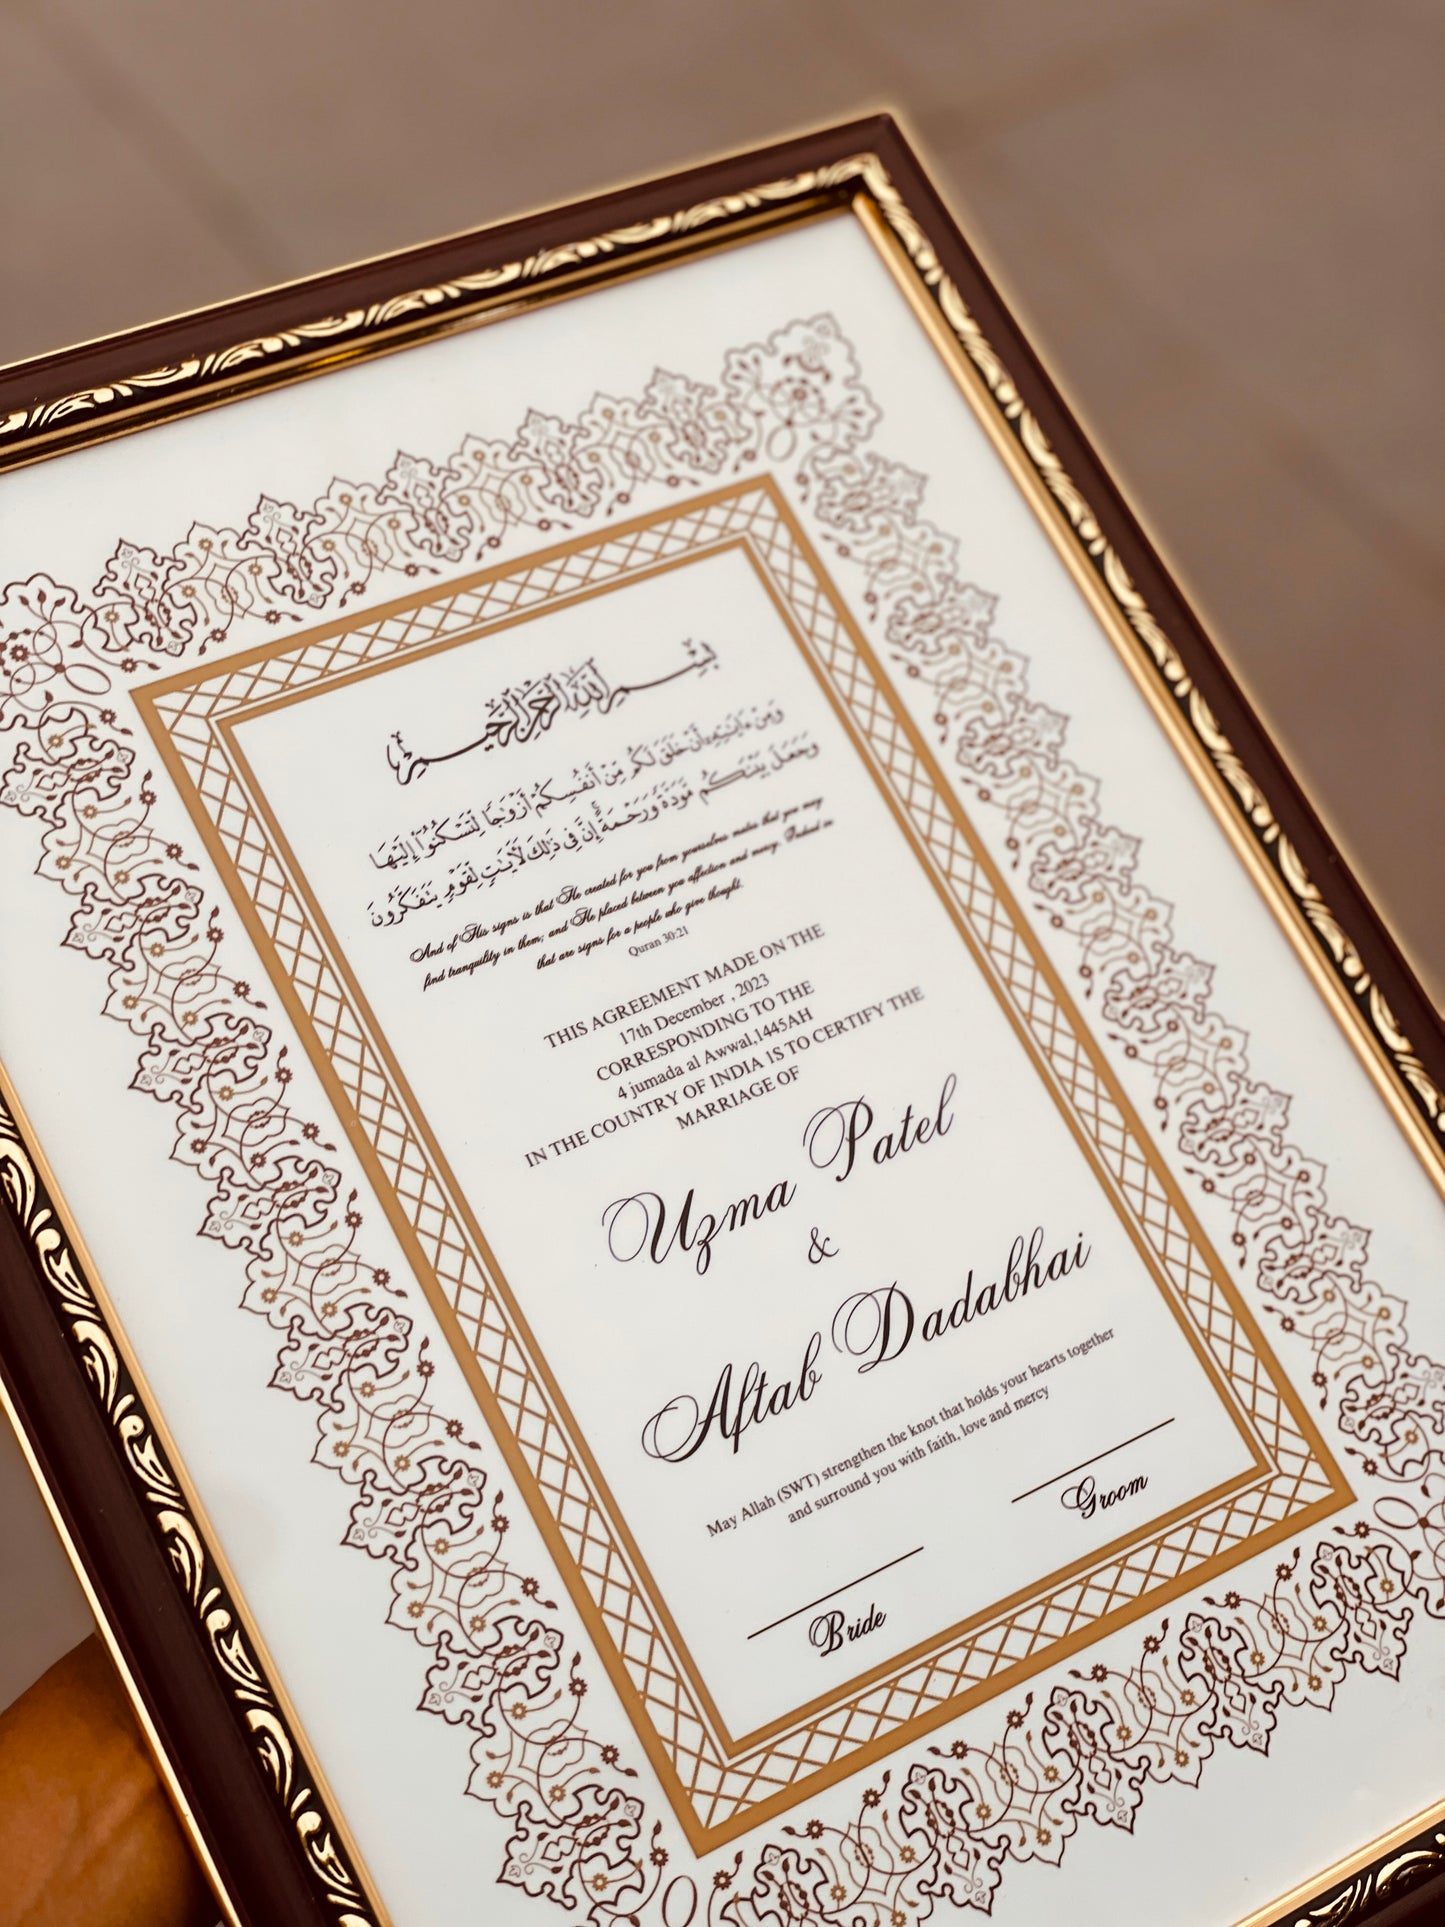 بسم الله الرحمن الرحيم
وَمِنْ ءَايَٰتِهِۦٓ أَنْ خَلَقَ لَكُم مِّنْ أَنفُسِكُمْ أَزْوَٰجًا لِّتَسْكُنُوٓا۟ إِلَيْهَا
وَجَعَلَ بَيْنَكُم مَّوَدَّةً وَرَحْمَةً ۚ إِنَّ فِى ذَٰلِكَ لَءَايَٰتٍ لِّقَوْمٍ يَتَفَكَّرُونَ
And of His signs is that He created for you from yourselves mates that you may
find tranquility in them; and He placed between you affection and mercy. Indeed in
that are signs for a people who give thought.
Quran 30:21
THIS AGREEMENT MADE ON THE
17th December , 2023
CORRESPONDING TO THE
4 jumada al Awwal,1445AH
IN THE COUNTRY OF INDIA IS TO CERTIFY THE
MARRIAGE OF
Uzma Patel
&
Aftab Dadabhai
May Allah (SWT) strengthen the knot that holds your hearts together
and surround you with faith, love and mercy
Bride
Groom